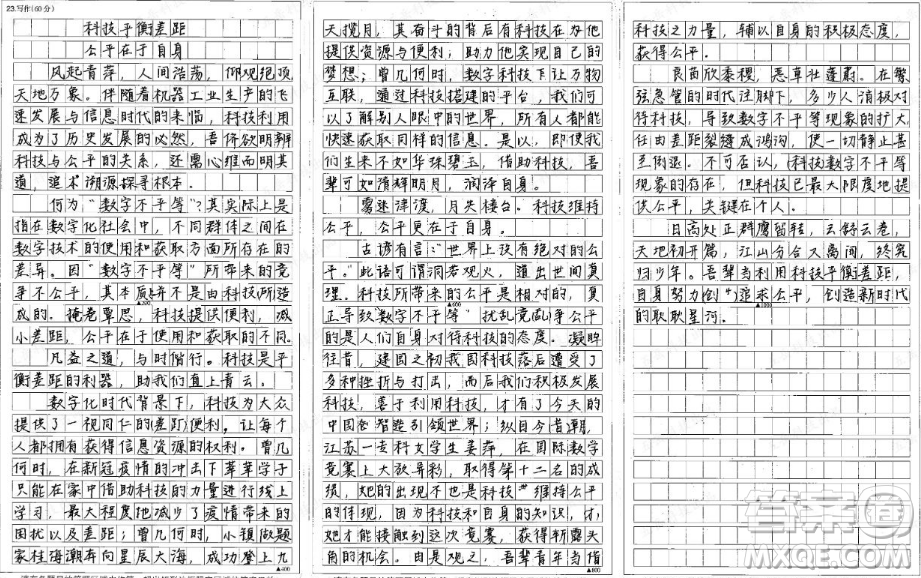 23.写作(60分)
科技平衡差距
公平在于自身
风起青萍，人间浩荡，仰观绝顶
天地万象。伴随着机器工业生产的飞
速发展与信息时代的来临，科技利用
成为了历史发展的必然，吾侪欲明辨
科技与公平的关系，还需心维而明其
道，追术溯源探寻根本。
何为“数字不平等”？其实际上是
指在数字化社会中，不同群体之间在
数字技术的使用和获取方面所存在的
差异。因“数字不平等”所带来的竞
争不公平，其本质并不是由科技所造
成的。掩卷覃思，科技提供便利，减
小差距，公平在于使用和获取的不同。
凡益之道，与时偕行。科技是平
衡差距的利器，助我们直上青云。
数字化时代背景下，科技为大众
提供了一视同仁的差距便利。让每个
人都拥有获得信息资源的权利。曾几
何时，在新冠疫情的冲击下莘莘学子
只能在家中借助科技的力量进行线上
学习，最大程度地减少了疫情带来的
困扰以及差距；曾几何时，小镇做题
家桂海潮奔向星辰大海，成功登上九
▲400
天揽月，其奋斗的背后有科技在为他
提供资源与便利；助力他实现自己的
梦想；曾几何时，数字科技下让万物
互联，通过科技搭建的平台，我们可
以了解别人眼中的世界，所有人都能
快速获取同样的信息。是以，即使我
们生来不如华珠碧玉，借助科技，吾
辈可如隋辉明月，润泽自身。
雾迷津渡，月失楼台。科技维持
公平，公平更在于自身。
古谚有言：“世界上没有绝对的公
平。”此语可谓洞若观火，道出世间真
理。科技所带来的公平是相对的，真
▲600
正导致“数字不平等”扰乱竞争公平
的是人们自身对待科技的态度。凝眸
往昔，建国之初我国科技落后遭受了
多种挫折与打击，而后我们积极发展
科技，善于利用科技，才有了今天的
中国智造引领世界；纵目今昔潮，
江苏一专科女学生姜萍，在国际数学
竞赛上大放异彩，取得第十二名的成
绩，她的出现不也是科技“维持公平
的体现，因为科技和自身的知识，才
她才能接触到这次竞赛，获得崭露头
角的机会。由是观之，吾辈青年当借
▲800
科技之力量，辅以自身的积极态度，
获得公平。
良苗欣黍稷，恶草壮蓬蒿。在繁
弦急管的时代注脚下，多少人消极对
待科技，导致数字不平等现象的扩大，
任由差距裂缝成鸿沟，使一切静止甚
至倒退。不可否认，科技数字不平等
现象的存在，但科技已最大限度地提
供公平，关键在个人。
日高处正群鹰留轻，云舒云卷，
天地初开篇，江山分合又离间，终究
归少年。吾辈当利用科技平衡差距，
自身努力创追求公平，创造新时代
▲1000
的耿耿星河。
答案圈